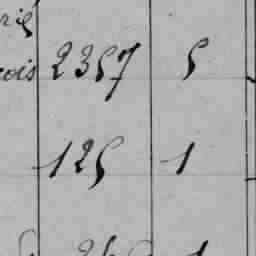 rie
cois 2357 5
125 1